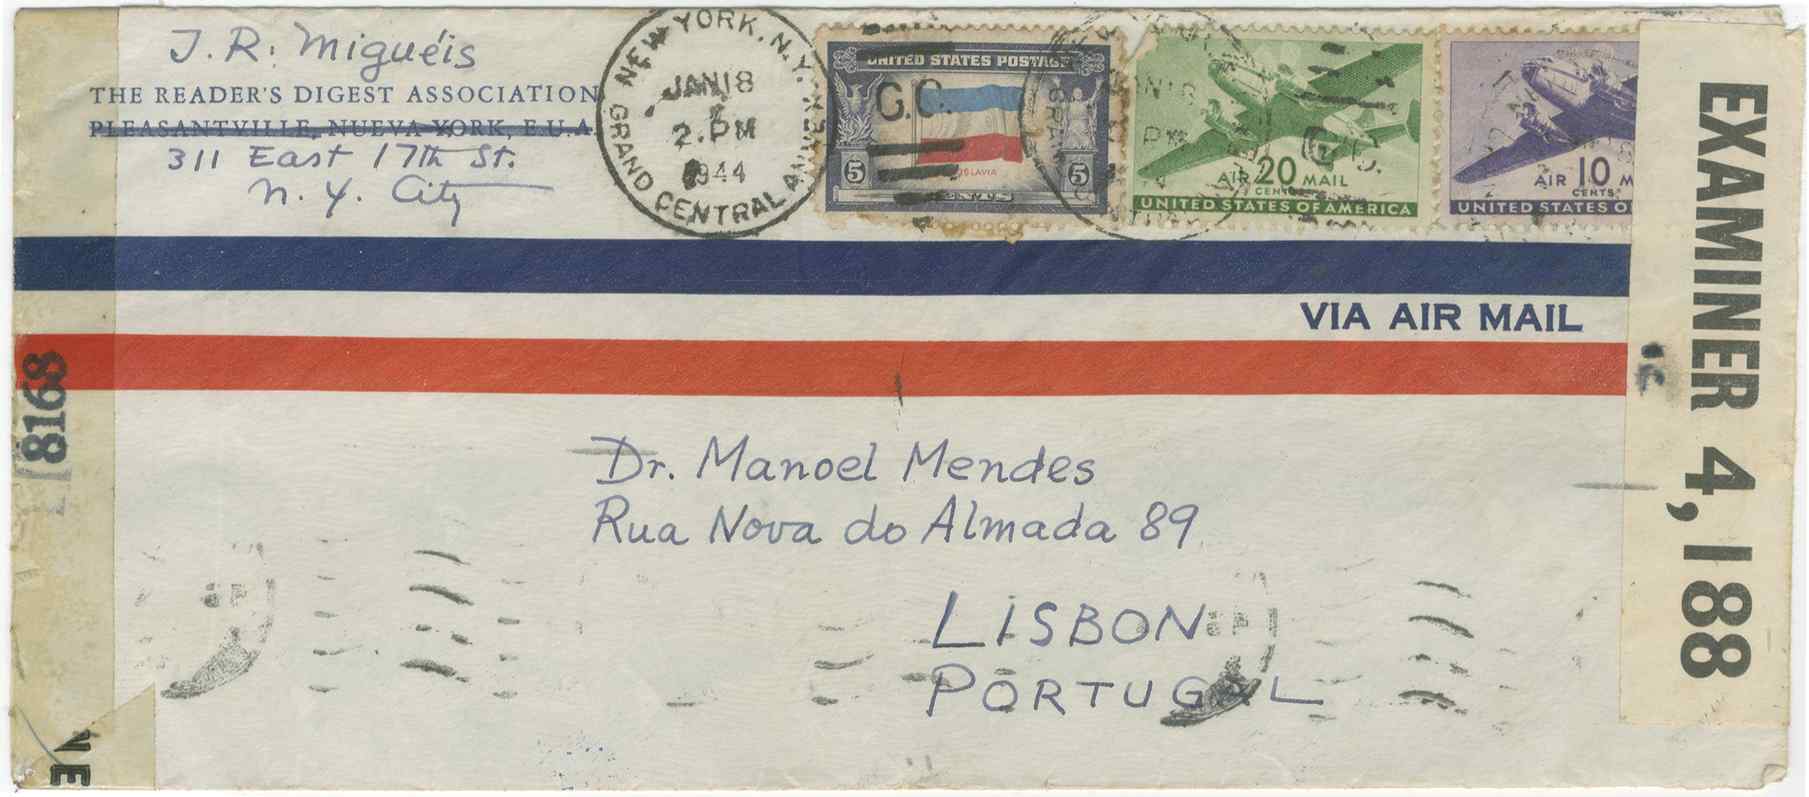 J. R. Miguéis
THE READER'S DIGEST ASSOCIATION
PLEASANTVILLE, NUEVA YORK, E.U.A.
311 East 17th St.
N. Y. City
NEW YORK, N.Y.
JAN 18
2. PM
1944
GRAND CENTRAL ANNEX
UNITED STATES POSTAGE
G.C.
5 5
CENTS
AIR 20 MAIL
CENTS
UNITED STATES OF AMERICA
AIR 10 M
CENTS
UNITED STATES O
VIA AIR MAIL
EXAMINER 4,188
8168
NE
Dr. Manoel Mendes
Rua Nova do Almada 89
LISBON
PORTUGAL